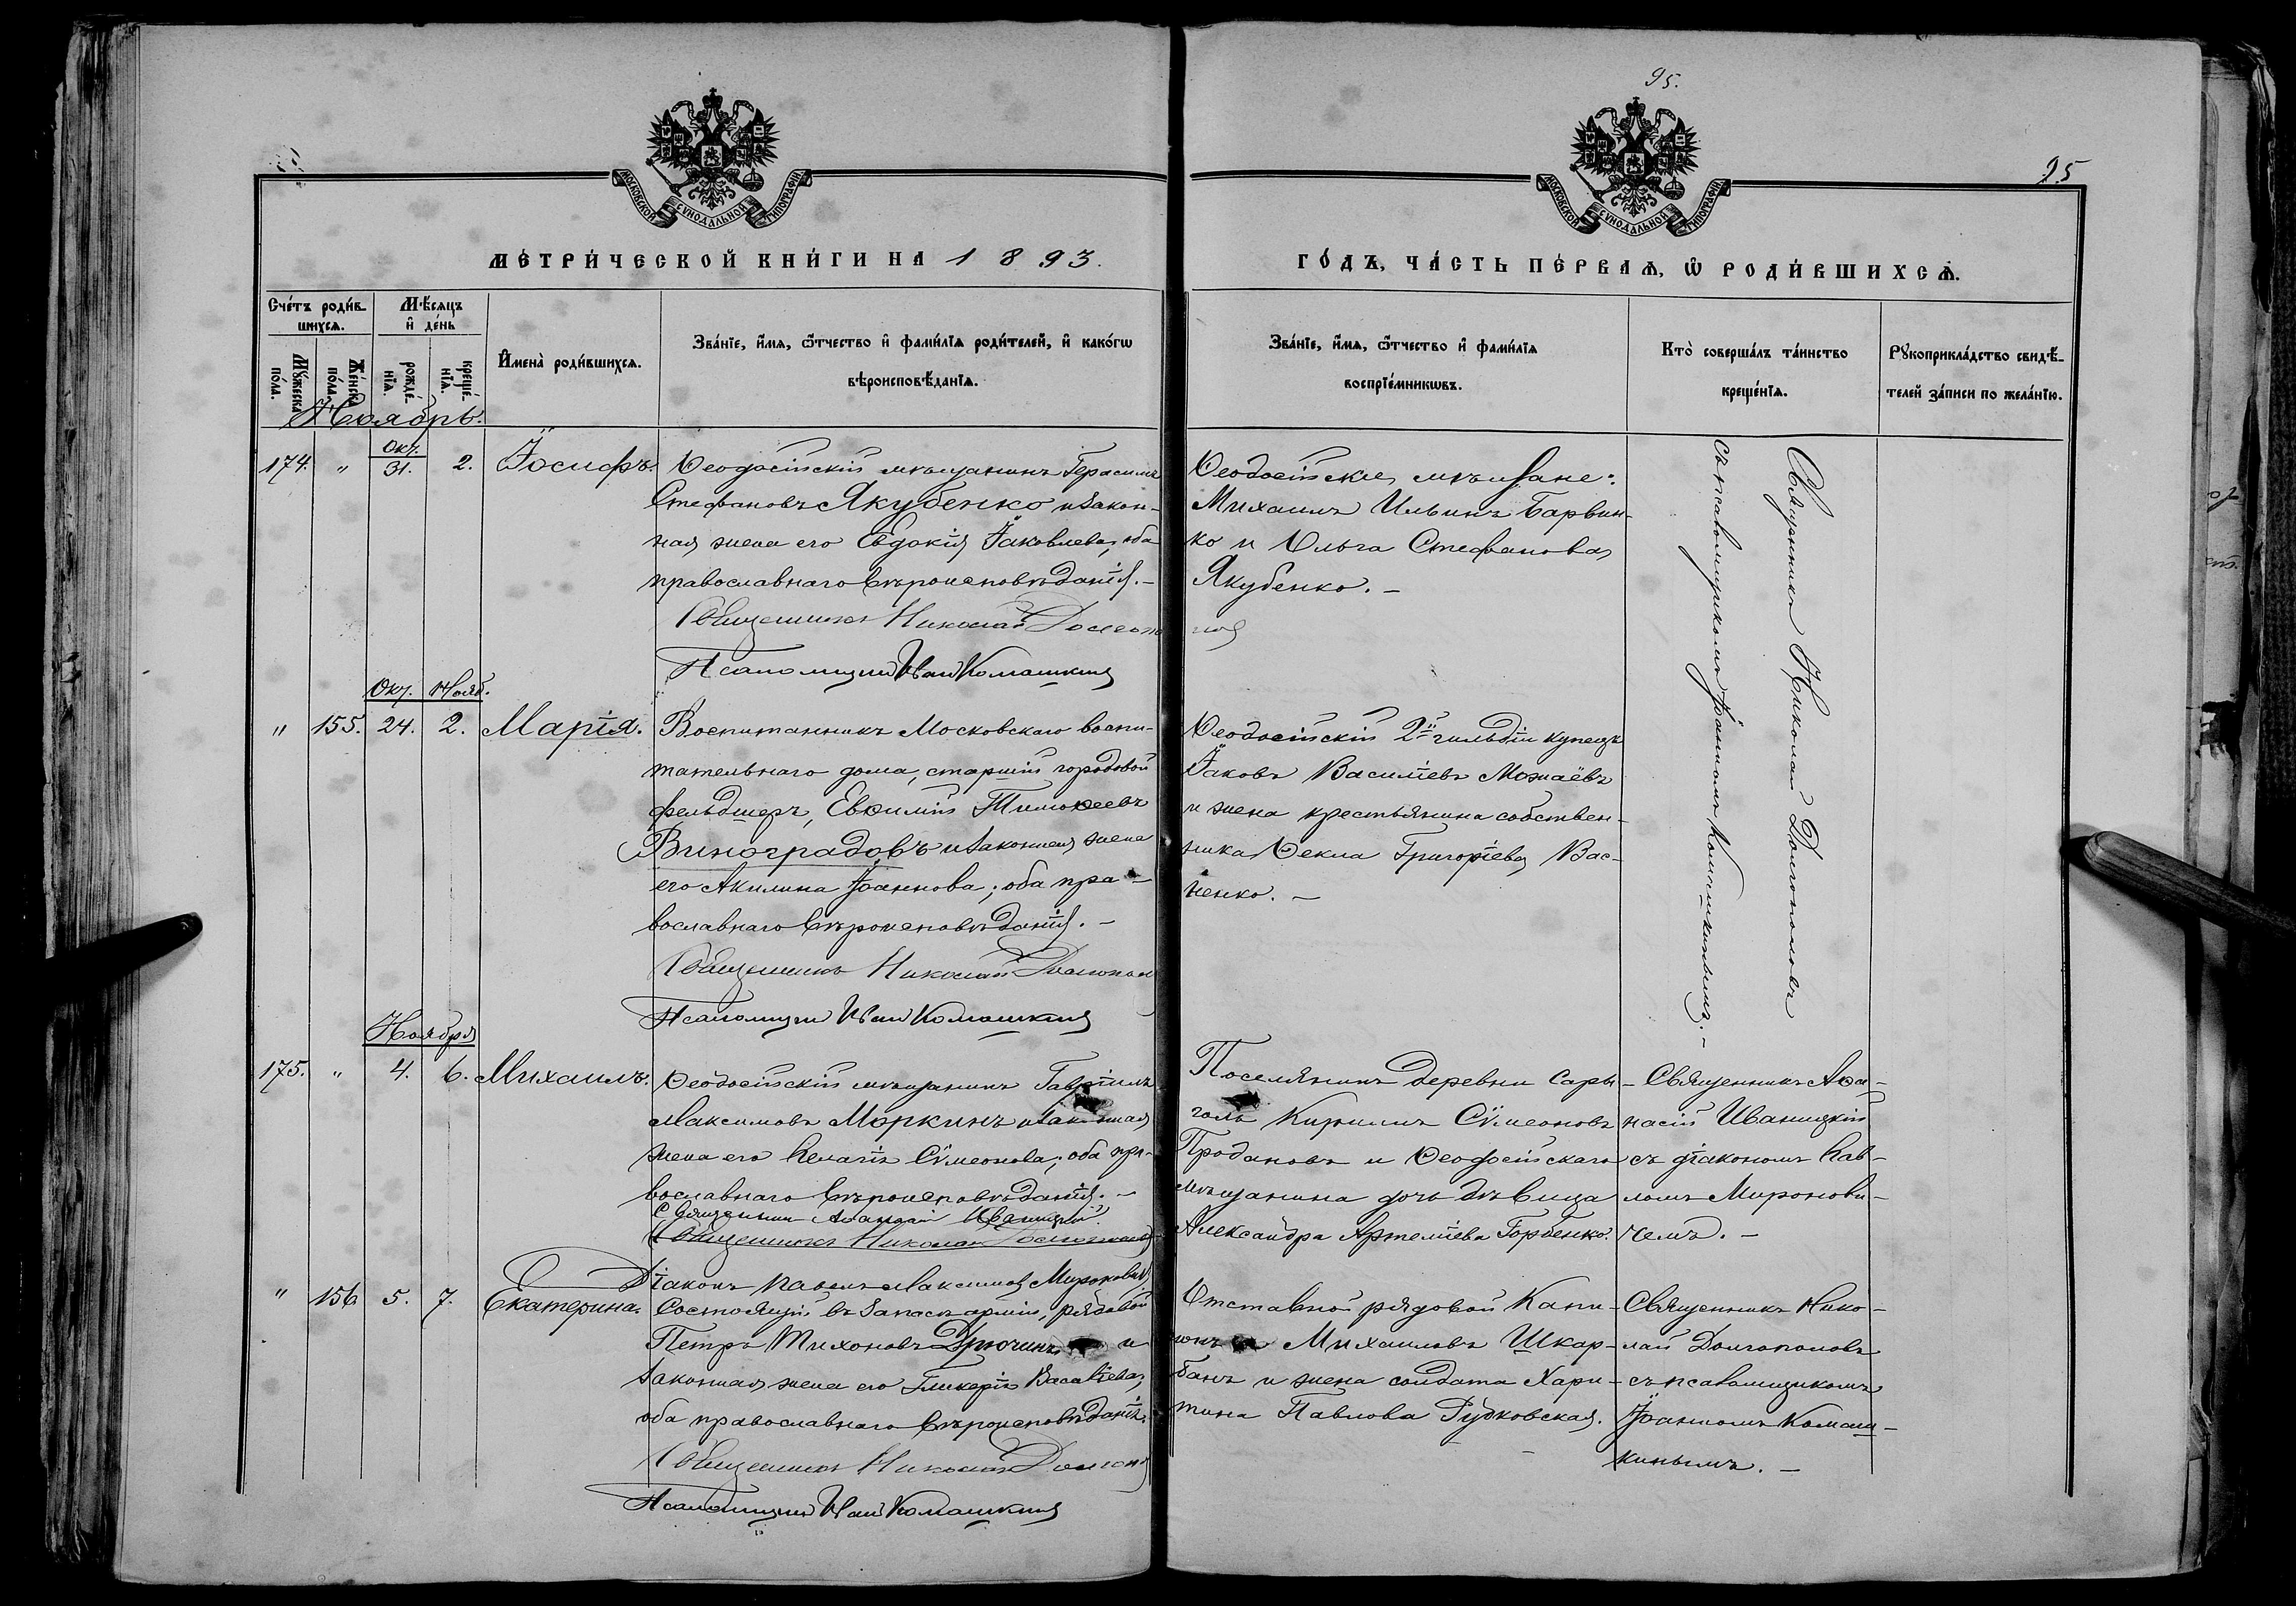 95.
95
МОСКОВСКОЙ СѴНОДАЛЬНОЙ ТИПОГРАФІИ
МОСКОВСКОЙ СѴНОДАЛЬНОЙ ТИПОГРАФІИ
МЕТРИ́ЧЕСКОЙ КНИ́ГИ НА 1893.
ГО́ДЪ, ЧА́СТЬ ПЕ́РВАѦ, Ѽ РОДИ́ВШИХСѦ.
Сче́тъ роди́в-
шихсѧ.
Мѣ́сѧцъ
и҆ де́нь
Мꙋ́жеска
по́ла.
Же́нска
по́ла.
рожде́-
нїѧ.
креще́-
нїѧ.
И҆мена̀ роди́вшихсѧ.
Зва́нїе, и҆́мѧ, ѻ҆́тчество и҆ фами́лїѧ роди́телей, и҆ како́гѡ
вѣроисповѣ́данїѧ.
Зва́нїе, и҆́мѧ, ѻ҆́тчество и҆ фами́лїѧ
воспрїе́мникѡвъ.
Кто̀ соверша́лъ та́инство
креще́нїѧ.
Рꙋкоприкла́дство свидѣ́-
телей за́писи по жела́нїю.
Ноябрь.
Окт.
174. " 31. 2. Іосифъ.
Ѳеодосійскій мѣщанинъ Герасимъ
Стефановъ Якубенко и закон-
ная жена его Евдокія Іаковлева, оба
православнаго вѣроисповѣданія. –
Священникъ Николай Долгополовъ
Псаломщикъ Иванъ Комашкинъ
Ѳеодосійскіе мѣщане:
Михаилъ Ильинъ Барвин-
ко и Ольга Стефанова
Якубенко. –
Священникъ Николай Долгополовъ
съ псаломщикомъ Іоанномъ Комашкинымъ. –
Окт. Нояб.
" 155. 24. 2. Марія.
Воспитанникъ Московскаго воспи-
тательнаго дома, старшій городовой
фельдшеръ, Евѳимій Тимоѳеевъ
Виноградовъ и законная жена
его Акилина Іоаннова; оба пра-
вославнаго вѣроисповѣданія. –
Священникъ Николай Долгополовъ
Псаломщикъ Иванъ Комашкинъ
Ѳеодосійскій 2й гильдіи купецъ
Іаковъ Василіевъ Можаёвъ
и жена крестьянина собствен-
ника Ѳекла Григоріева Вас-
ненко. –
Ноября
175. " 4. 6. Михаилъ.
Ѳеодосійскій мѣщанинъ Гавріилъ
Максимовъ Моркинъ и законная
жена его Пелагія Сѵмеонова; оба пра-
вославнаго вѣроисповѣданія. –
Священникъ Аѳанасій Иваницкій
Священникъ Николай Долгополовъ
Діаконъ Павелъ Максимовъ Мироновичъ
Поселянинъ деревни Сары-
голь Кириллъ Сѵмеоновъ
Продановъ и Ѳеодосійскаго
мѣщанина дочь дѣвица
Александра Артеміева Горбенко.
Священникъ Аѳа-
насій Иваницкій
съ діакономъ Пав-
ломъ Миронови-
чемъ. –
" 156 5. 7. Екатерина.
Состоящій въ запасѣ арміи, рядовой
Петръ Тихоновъ Дрючинъ и
законная жена его Гликерія Василіева,
оба православнаго вѣроисповѣданія.
Священникъ Николай Долгополовъ
Псаломщикъ Иванъ Комашкинъ
Отставной рядовой Капи-
тонъ Михаиловъ Шкар-
банъ и жена солдата Хари-
тина Павлова Гудковская.
Священникъ Нико-
лай Долгополовъ
съ псаломщикомъ
Іоанномъ Комаш-
кинымъ. –